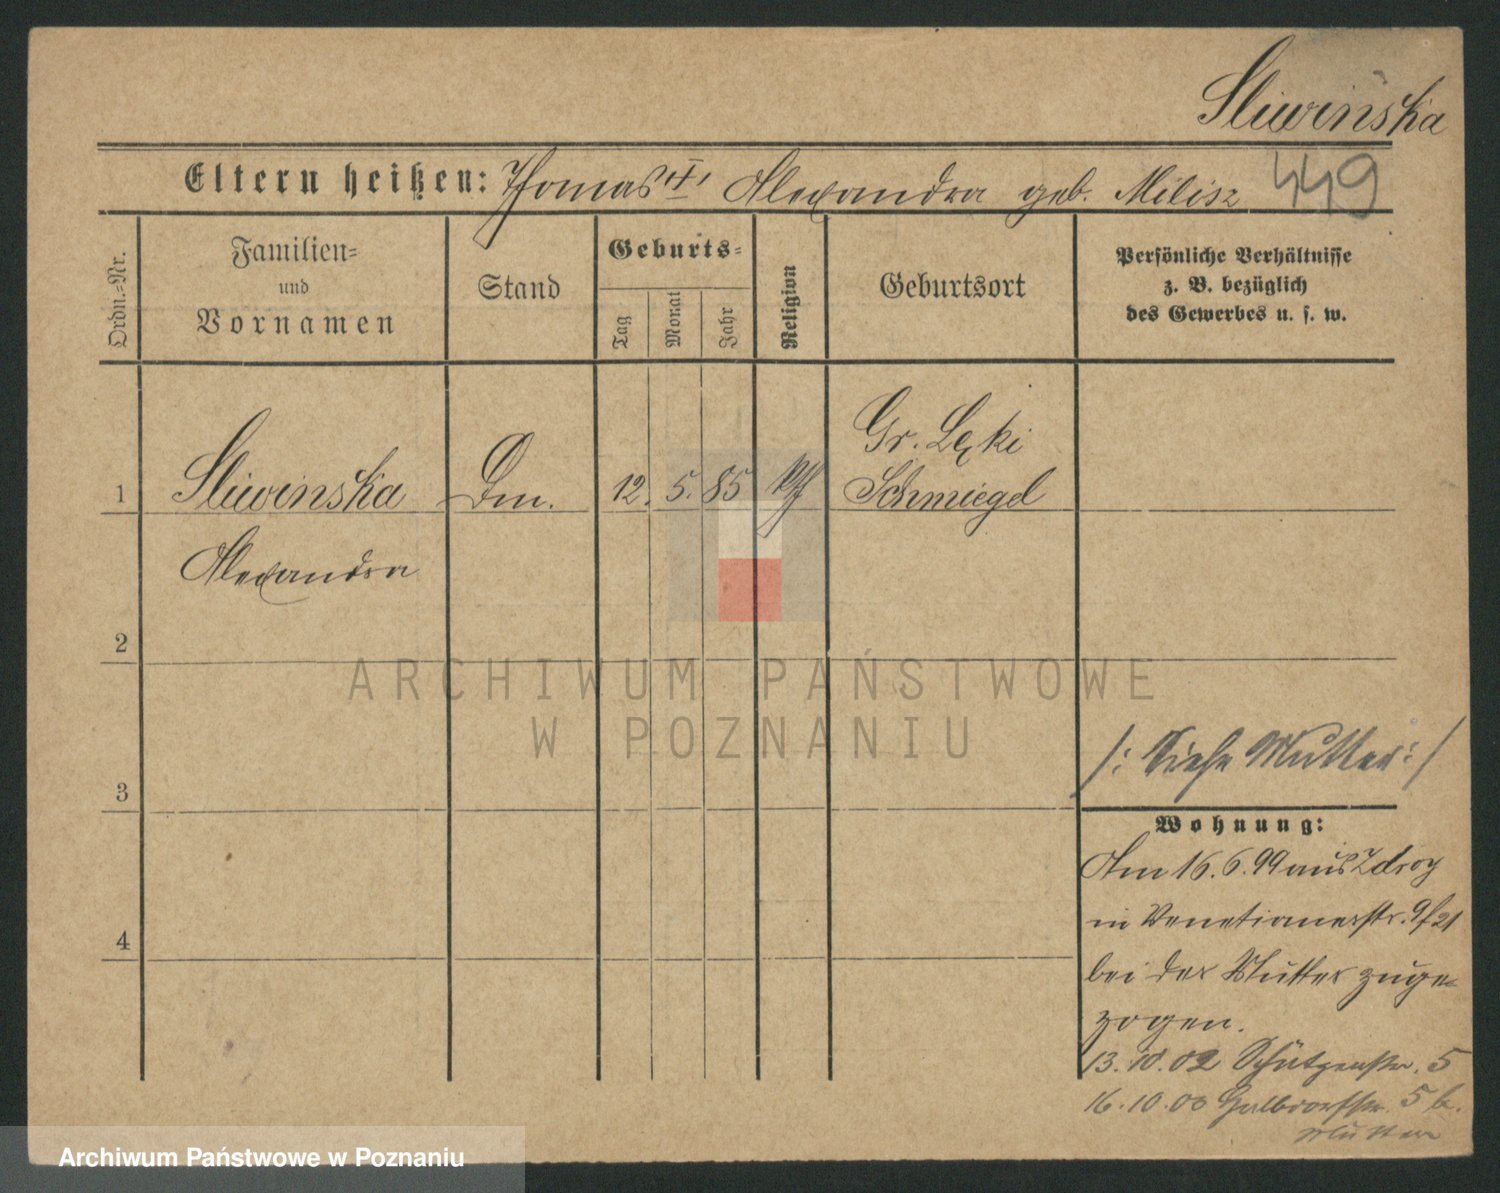 Sliwinska
449
Eltern heißen: Thomas + Alexandra geb. Milisz
Ordn.-Nr.
Familien-
und
Vornamen
Stand
Geburts-
Tag
Monat
Jahr
Religion
Geburtsort
Persönliche Verhältnisse
z. B. bezüglich
des Gewerbes u. s. w.
1
Sliwinska
12. 5. 85
Gr. Lęki
Schmiegel
Alexandra
2
ARCHIWUM PAŃSTWOWE
W POZNANIU
3
/: Siehe Mutter :/
Wohnung:
Am 16.6.99 aus Zdroy
in Venetianerstr. 9/21
bei der Mutter zuge-
zogen.
4
13.10.02 Schützenstr. 5
16.10.03 Halbdorfstr. 5 b.
Mutter
Archiwum Państwowe w Poznaniu